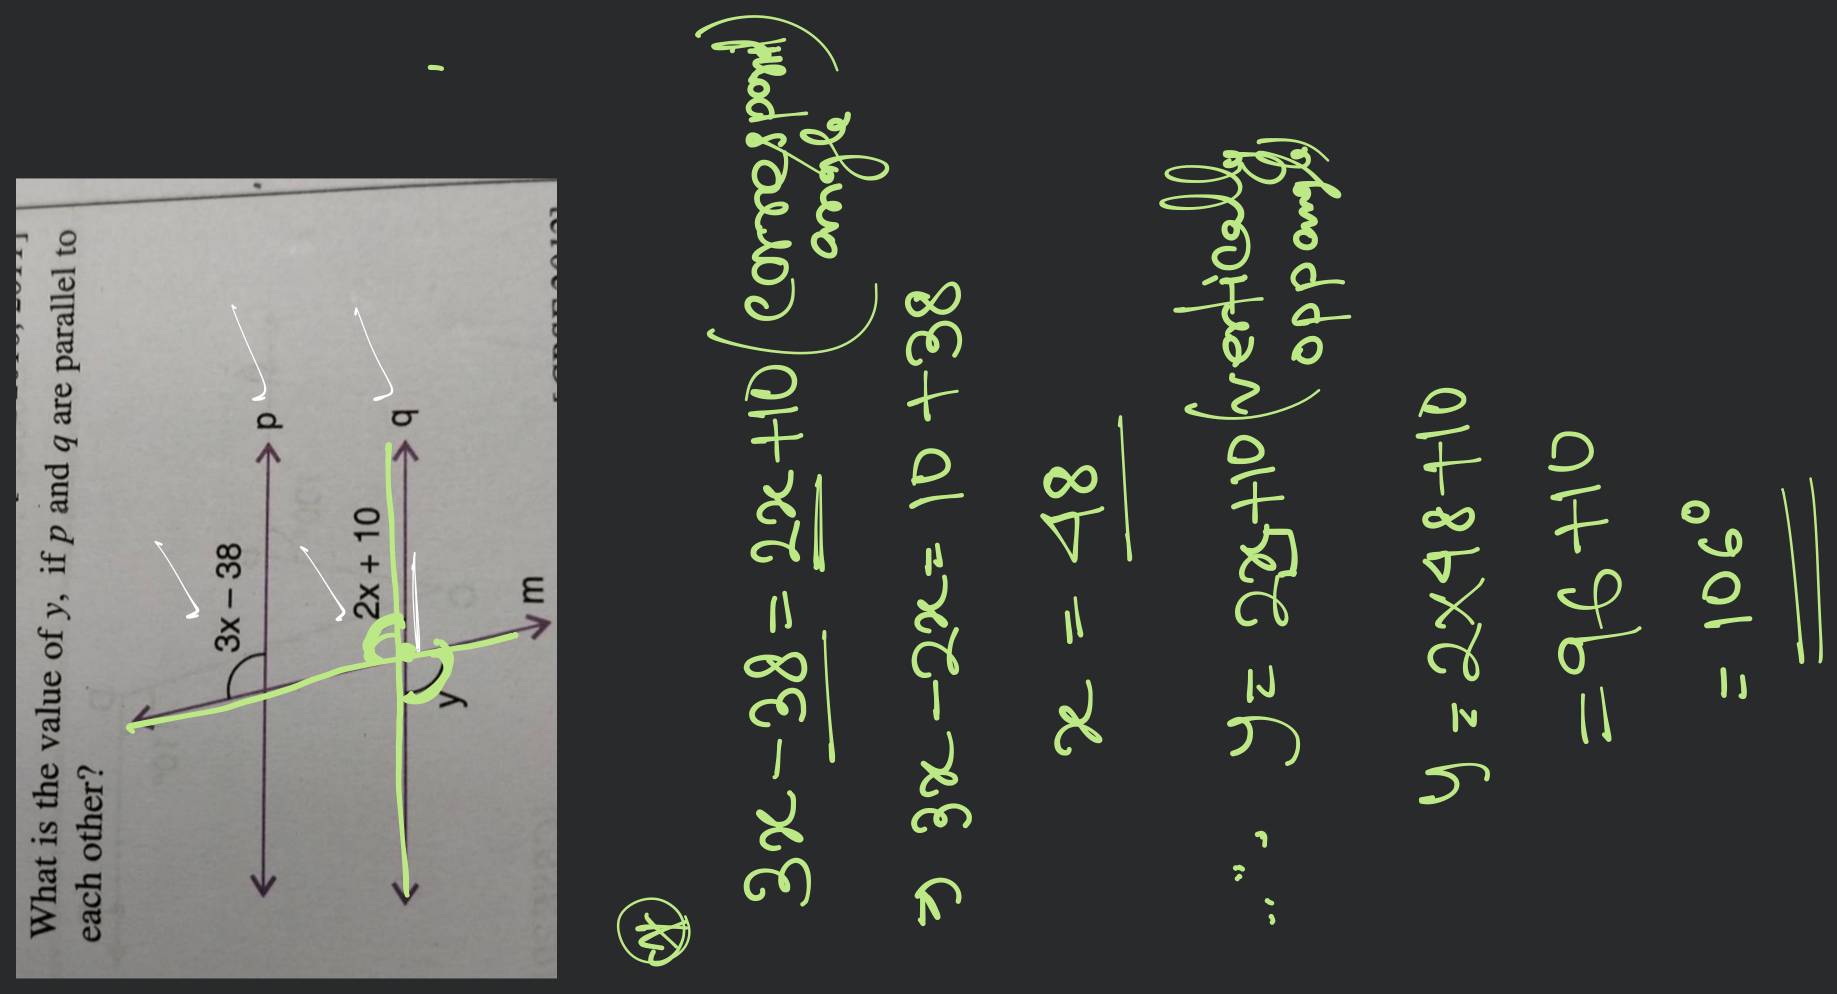 What is the value of y, if p and q are parallel to
each other?
3x – 38
p
2x + 10
q
y
m
3x - 38 = 2x+10 (corresspond
angle
⇒ 3x - 2x = 10 + 38
x = 48
∴, y = 2x+10 (vertically
y = 2x48+10
= 96 + 10
= 106°